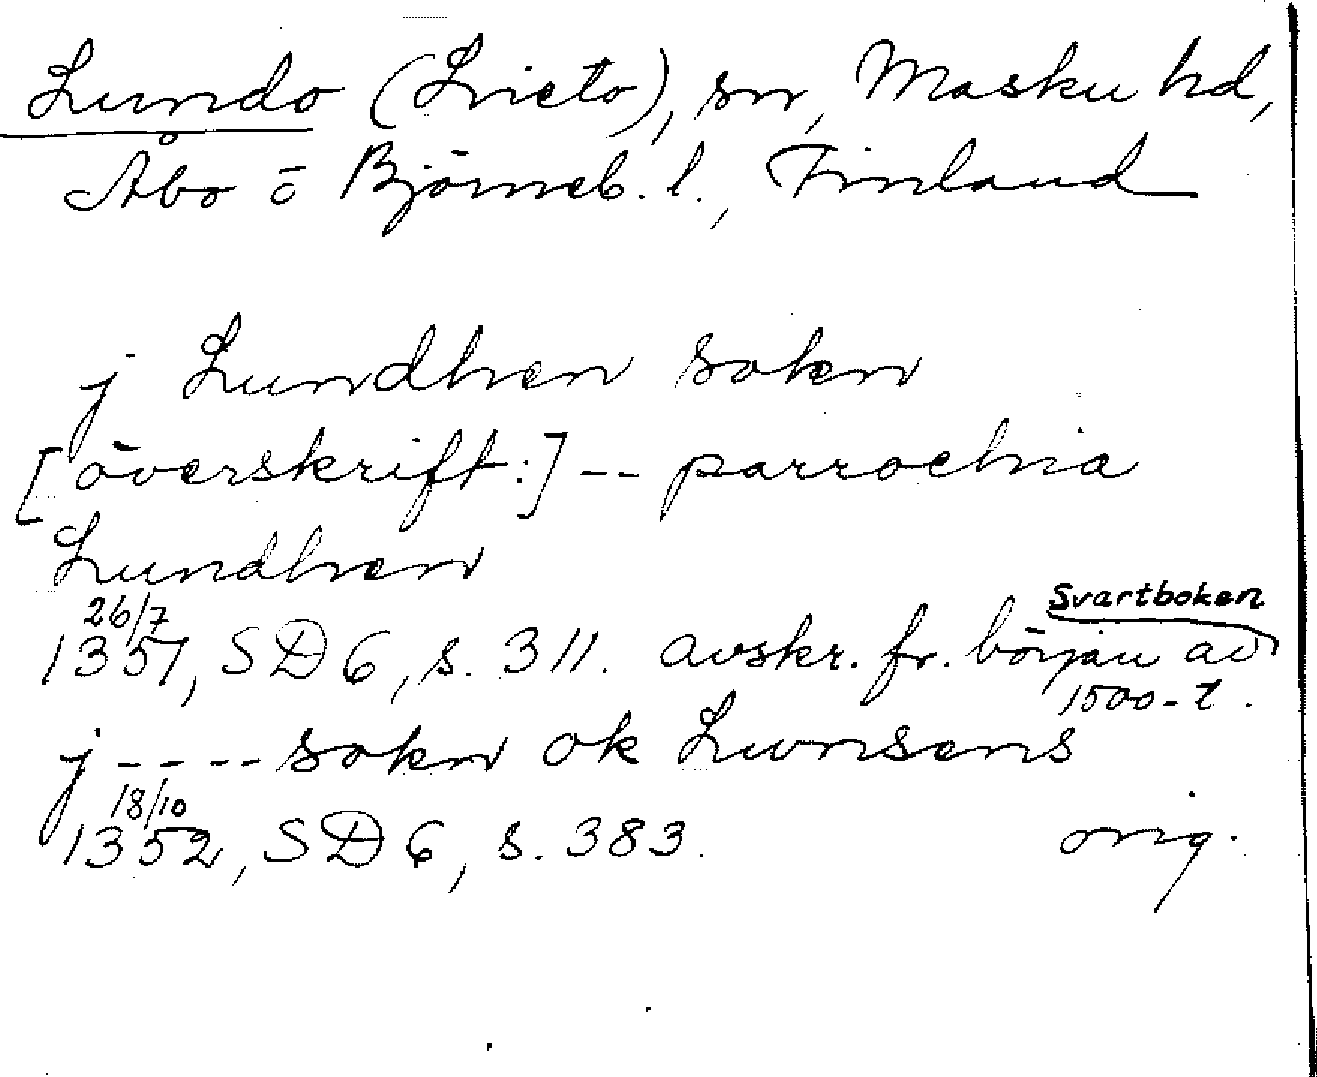 Lundo (Lieto), sn, Masku hd,
Åbo o Björneb. l., Finland
j Lundhen sokn
[överskrift:] -- parrochia
Lundhen
26/7
Svartboken
1351, SD 6, s. 311. avskr. fr. början av
1500-t.
j ---- sokn ok Lunsens
18/10
1352, SD 6, s. 383. orig.